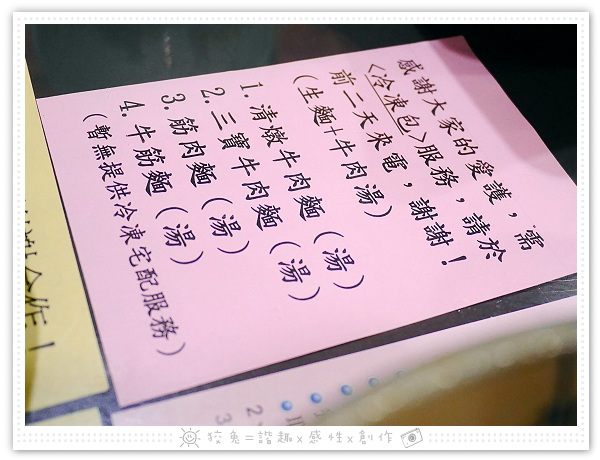 感謝大家的愛護，需
<冷凍包>服務，請於
前二天來電，謝謝！
(生麵+牛肉湯)
1.清燉牛肉麵（湯）
2.三寶牛肉麵（湯）
3.筋肉麵（湯）
4.牛筋麵（湯）
(暫無提供冷凍宅配服務)
合作！
狡兔=諧趣x感性x創作